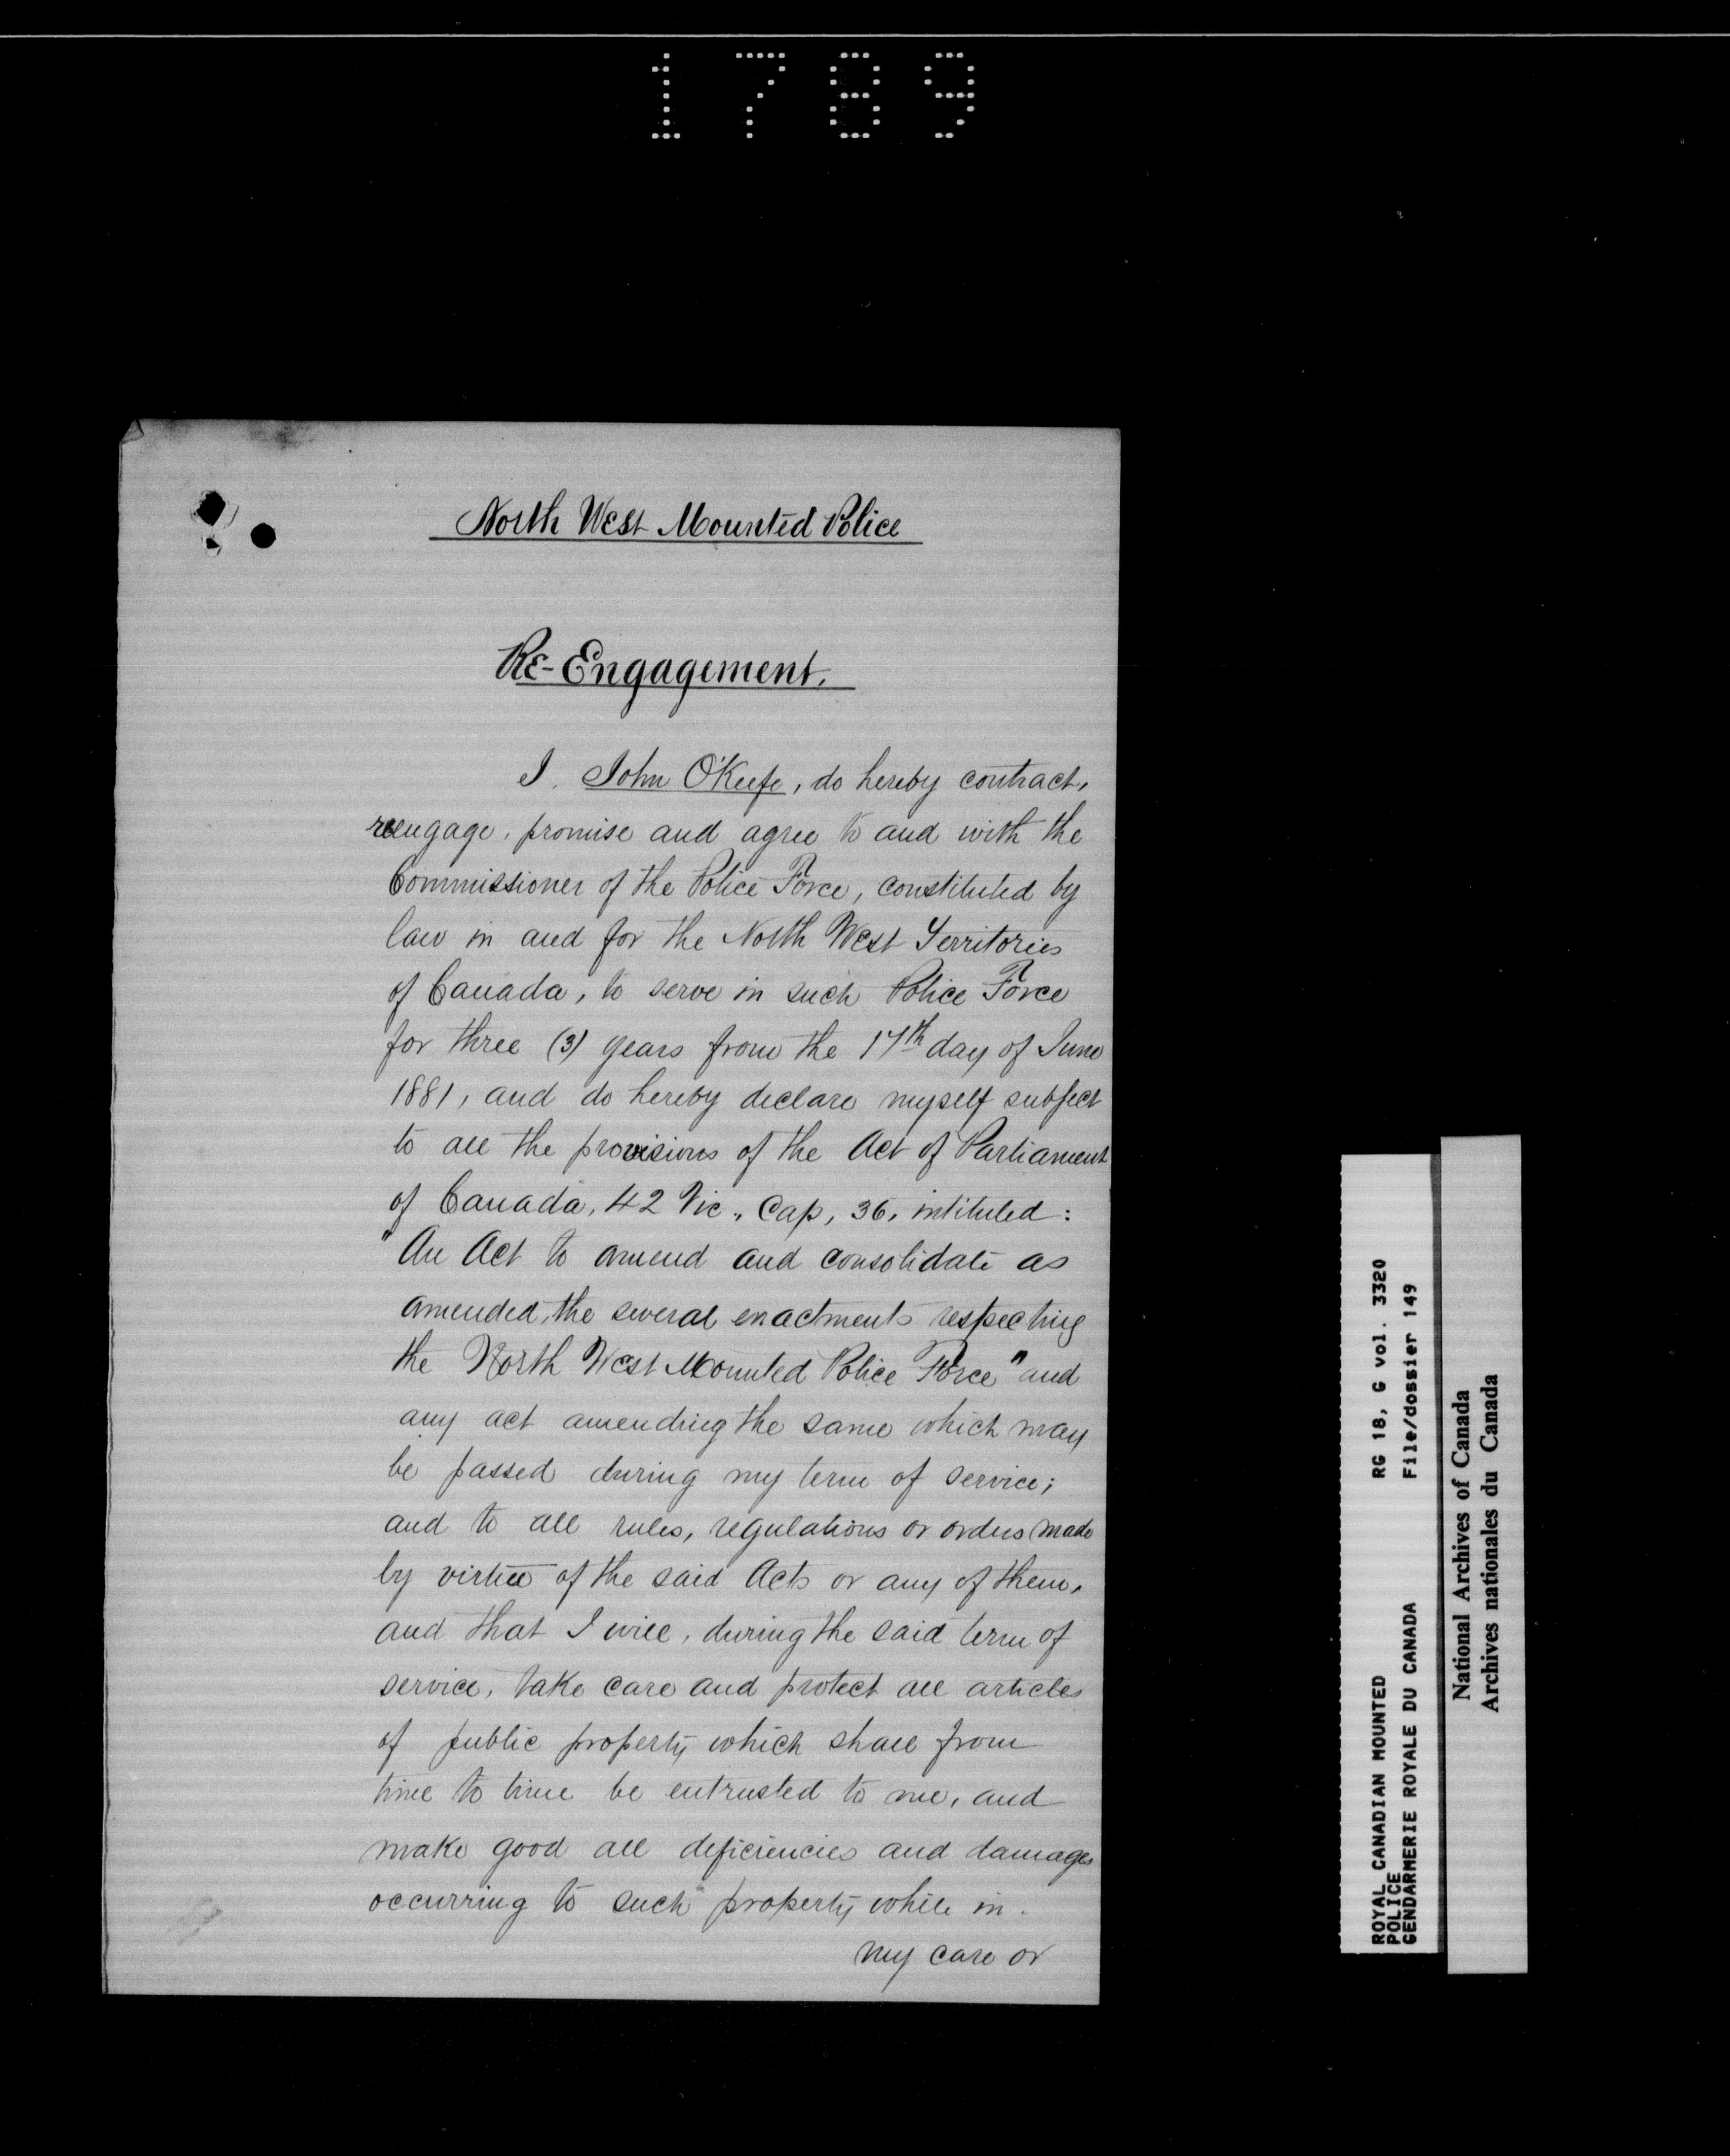 1789
North West Mounted Police
Re-Engagement.
I. John O'Keefe, do hereby contract,
reengage, promise and agree to and with the
Commissioner of the Police Force, constituted by
law in and for the North West Territories
of Canada, to serve in such Police Force
for three (3) years from the 17th day of June
1881, and do hereby declare myself subject
to all the provisions of the Act of Parliament
of Canada, 42 Vic., Cap, 36, intituled:
"An Act to amend and consolidate as
amended, the several enactments respecting
the North West Mounted Police Force" and
any act amending the same which may
be passed during my term of service;
and to all rules, regulations or orders made
by virtue of the said Acts or any of them,
and that I will, during the said term of
service, take care and protect all articles
of public property which shall from
time to time be entrusted to me, and
make good all deficiencies and damages
occurring to such property while in.
my care or
ROYAL CANADIAN MOUNTED RG 18, G vol. 3320
POLICE
GENDARMERIE ROYALE DU CANADA File/dossier 149
National Archives of Canada
Archives nationales du Canada